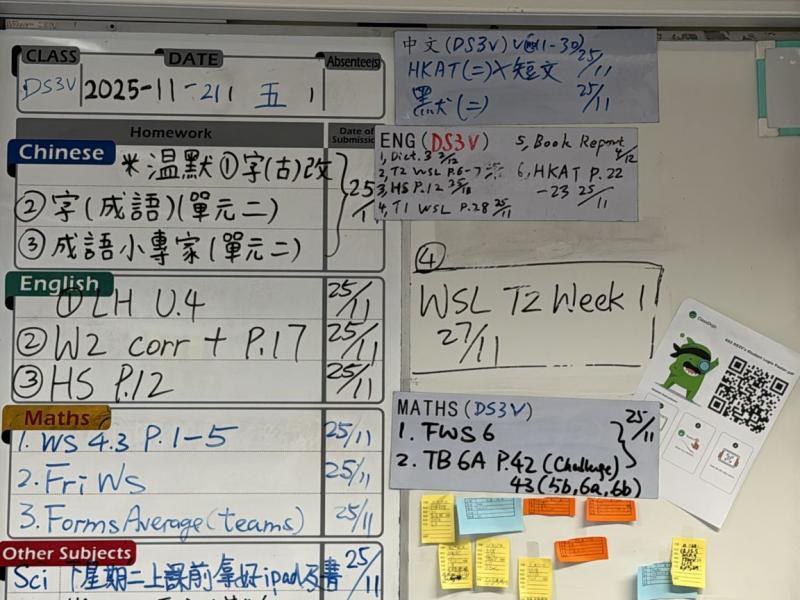 CLASS DATE Absentee(s)
DS3V 2025-11-21 五
Homework Date of Submission
Chinese
*溫默①字(古)改
②字(成語)(單元二)
③成語小專家(單元二)
25/11
English
①LH U.4 25/11
②W2 corr + P.17 25/11
③HS P.12 25/11
Maths
1. WS 4.3 P.1-5 25/11
2. Fri WS 25/11
3. Forms Average (teams) 25/11
Other Subjects
Sci 下星期二上課前拿好ipad及書 25/11
中文(DS3V) 25/11
HKAT(二)X短文
默(二) 25/11
ENG (DS3V)
1, Dict. 3
2, T2 WSL P.6-7
3, HS P.12
4, T1 WSL P.28 25/11
5, Book Report 4/12
6, HKAT P.22
-23 25/11
④
WSL T2 Week 1
27/11
ClassDojo
MATHS (DS3V)
1. FWS 6
2. TB 6A P.42 (Challenge)
43 (5b, 6a, 6b)
25/11